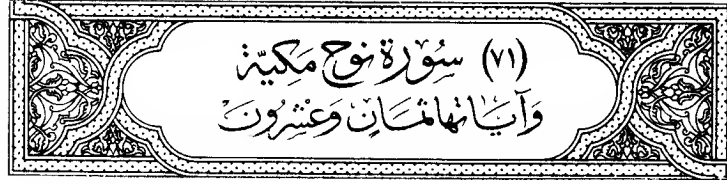 (٧١) سُورَة نوح مَكيّة
وَآيَاتها ثمَان وَعشرُونَ